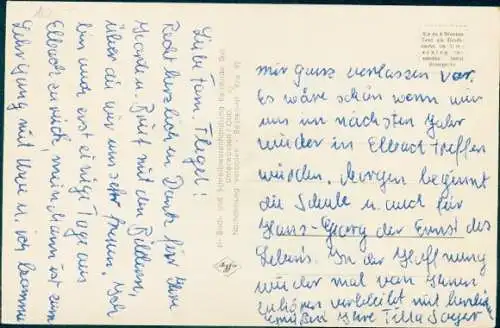 Liebe Fam. Flegel!
Recht herzlichen Dank für Ihre
Karten u. Brief mit den Bildern,
über die wir uns sehr freuen. Ich
bin auch erst einige Tage aus
Elbach zurück, mein Mann ist zum
Lehrgang mit Uwe u. ich komme
mir ganz verlassen vor.
Es wäre schön wenn wir
uns im nächsten Jahr
wieder in Elbach treffen
würden. Morgen beginnt
die Schule u. auch für
Hans-Georg der Ernst des
Lebens. In der Hoffnung
wieder mal von Ihnen
zu hören verbleibt mit herzlichen
Grüßen Ihre Tilla Soyer